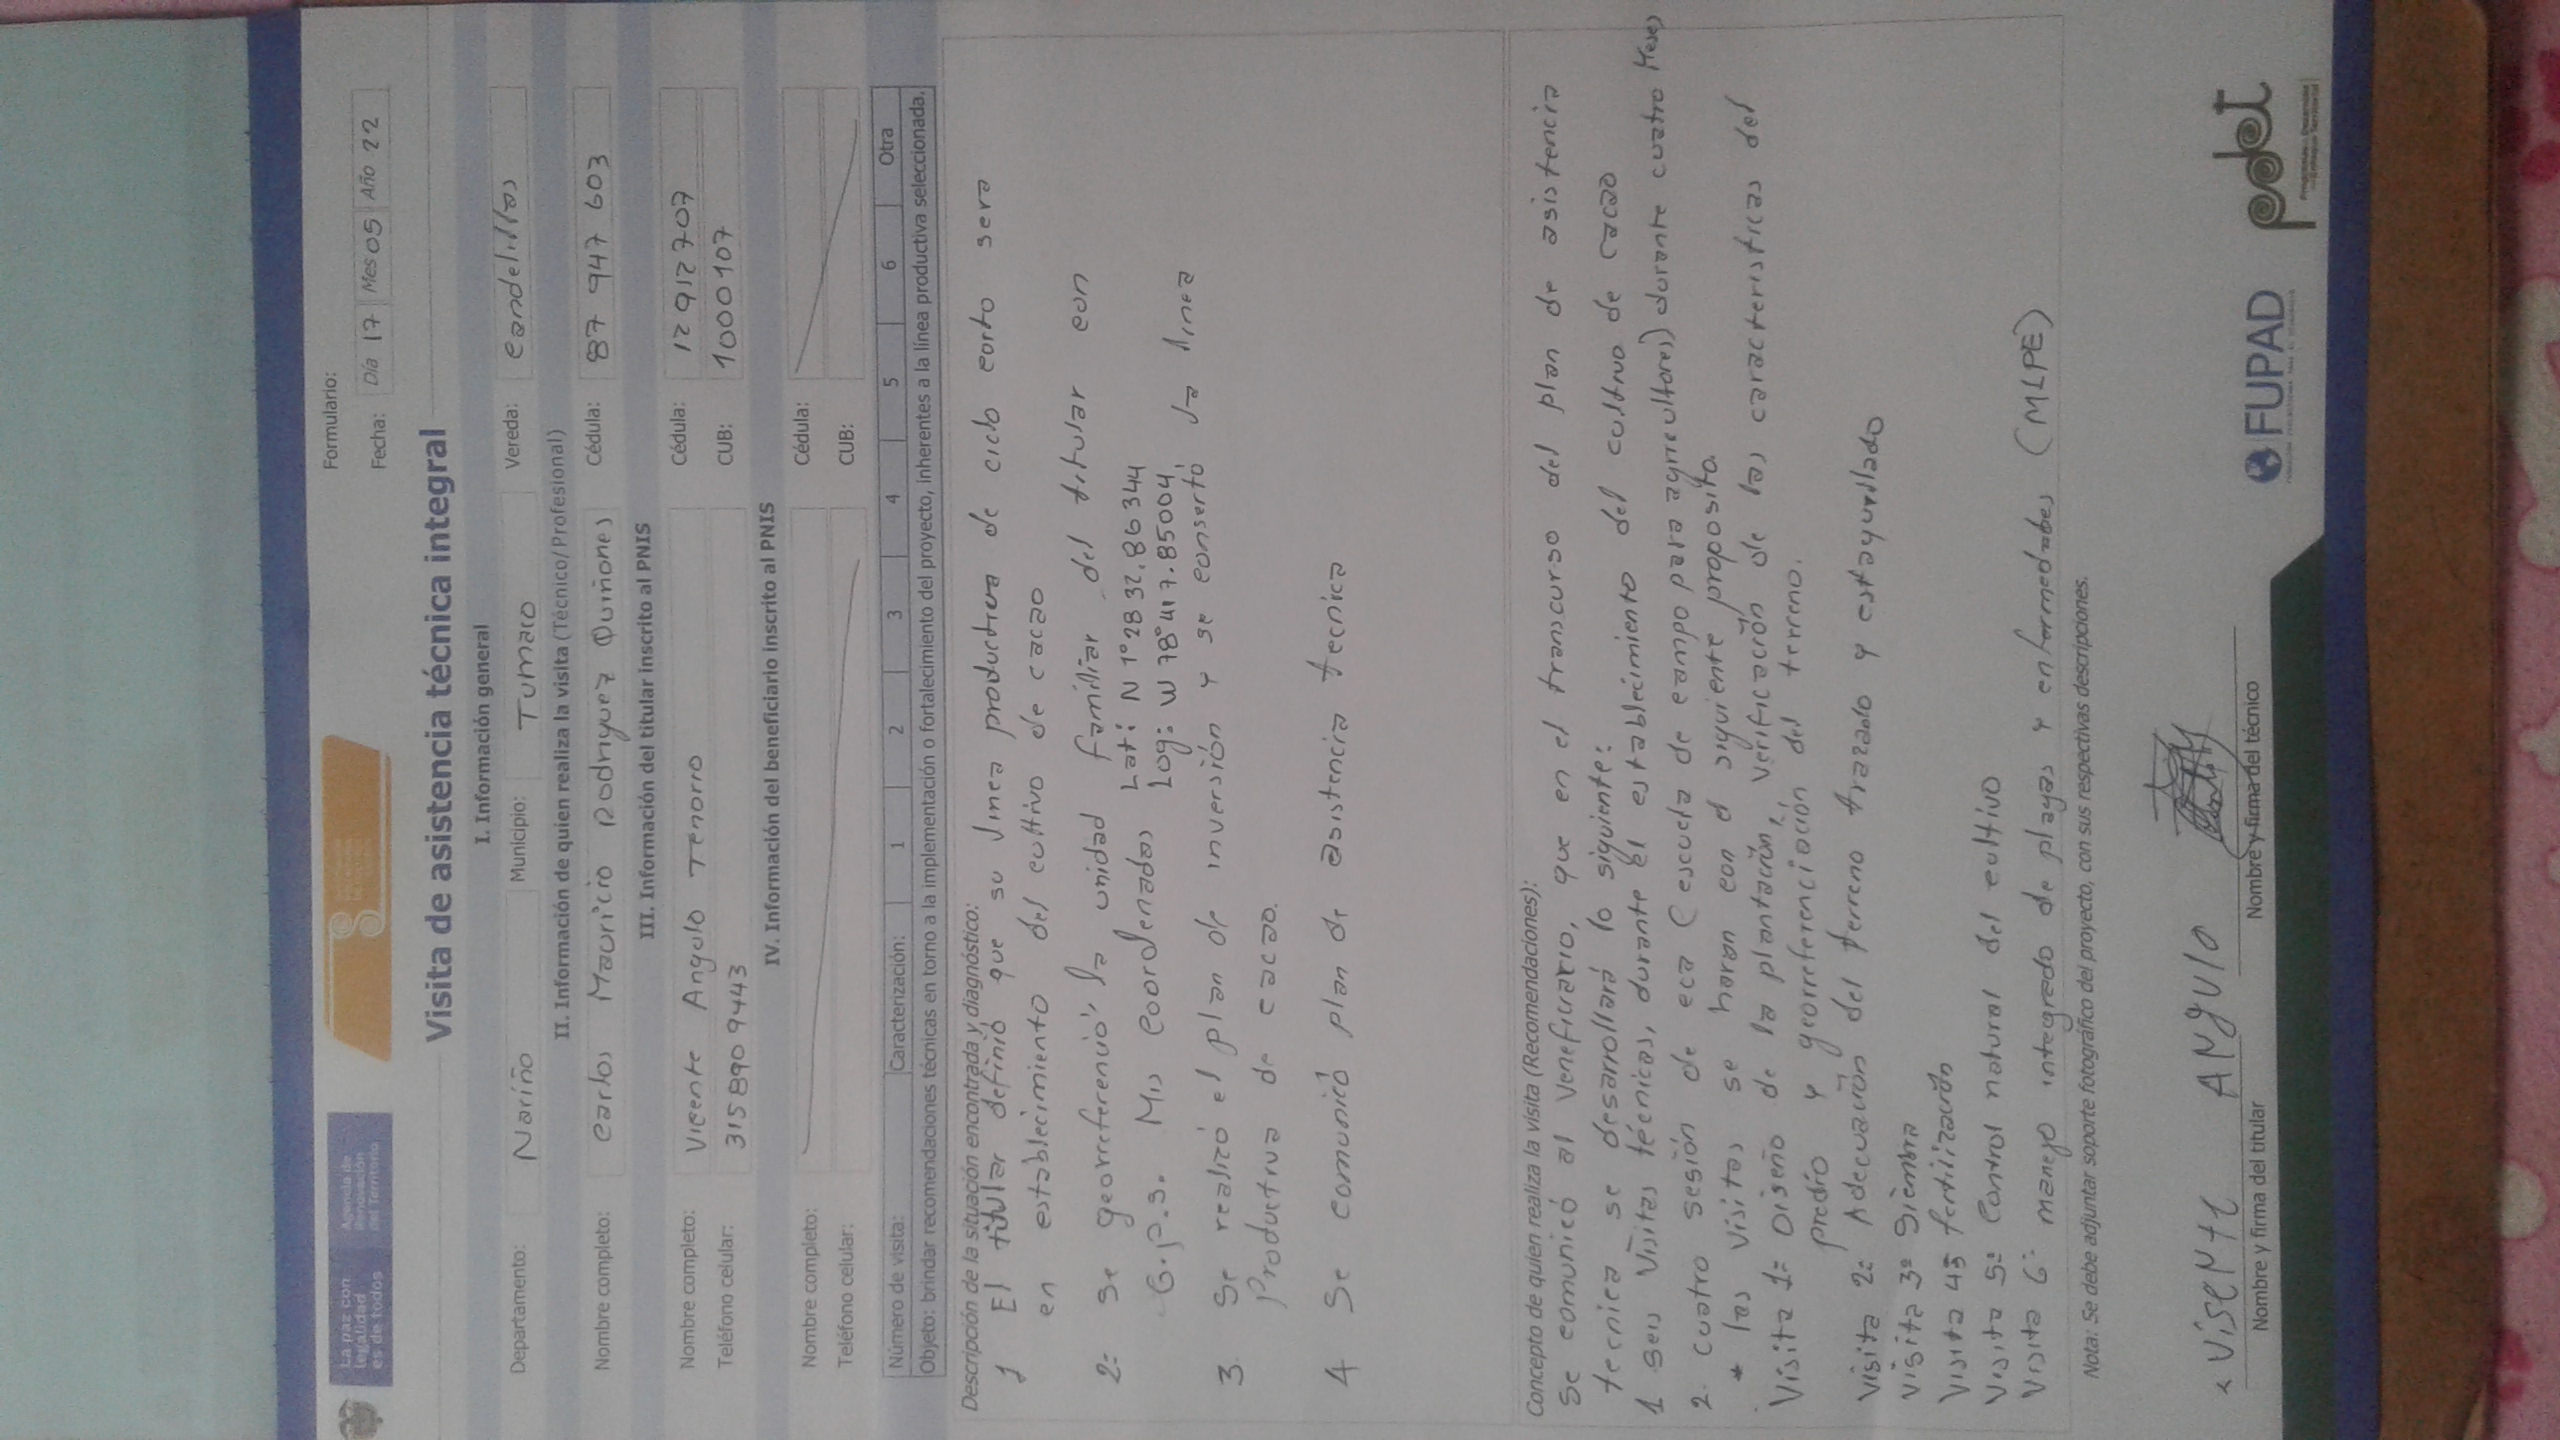 La paz con
legalidad
es de todos
Agencia de
Renovación
del Territorio
Formulario:
Fecha: Día 17 Mes 05 Año 22
Visita de asistencia técnica integral
I. Información general
Departamento: Nariño Municipio: Tumaco Vereda: candelillas
II. Información de quien realiza la visita (Técnico/Profesional)
Nombre completo: carlos Mauricio Rodriguez Quiñones Cédula: 87 947 603
III. Información del titular inscrito al PNIS
Nombre completo: Vicente Angulo Tenorio Cédula: 12 912 707
Teléfono celular: 315 890 9443 CUB: 1000107
IV. Información del beneficiario inscrito al PNIS
Nombre completo: Cédula:
Teléfono celular: CUB:
Número de visita: Caracterización: 1 2 3 4 5 6 Otra
Objeto: brindar recomendaciones técnicas en torno a la implementación o fortalecimiento del proyecto, inherentes a la línea productiva seleccionada.
Descripción de la situación encontrada y diagnóstico:
1 El titular definió que su linea productiva de ciclo corto sera
en establecimiento del cultivo de cacao
2= se georreferenció la unidad familiar del titular con
G.P.S. Mis coordenadas Lat: N 1° 28 32.86344
Log: W 78° 41 7.85004
3. Se realizó el plan de inversión y se consertó la linea
Productiva de cacao.
4 Se comunicó plan de asistencia tecnica
Concepto de quien realiza la visita (Recomendaciones):
Se comunicó al veneficiario, que en el transcurso del plan de asistencia
tecnica se desarrollará lo siguiente:
1 seis visitas técnicas, durante el establecimiento del cultivo de cacao
2. cuatro sesión de eca (escuela de campo para agricultores) durante cuatro Meses
* las visitas se haran con el siguiente proposito.
Visita 1= Diseño de la plantación, verificación de las caracteristicas del
predio y georreferenciación del terreno.
Visita 2= Adecuación del terreno trazado y estaquillado
visita 3= Siembra
Visita 4= fertilización
Visita 5= Control natural del cultivo
Visita 6= manejo integredo de plagas y enformedades (MIPE)
Nota: Se debe adjuntar soporte fotográfico del proyecto, con sus respectivas descripciones.
x VISENTE ANgulo
Nombre y firma del titular Nombre y firma del técnico
FUPAD
pdet